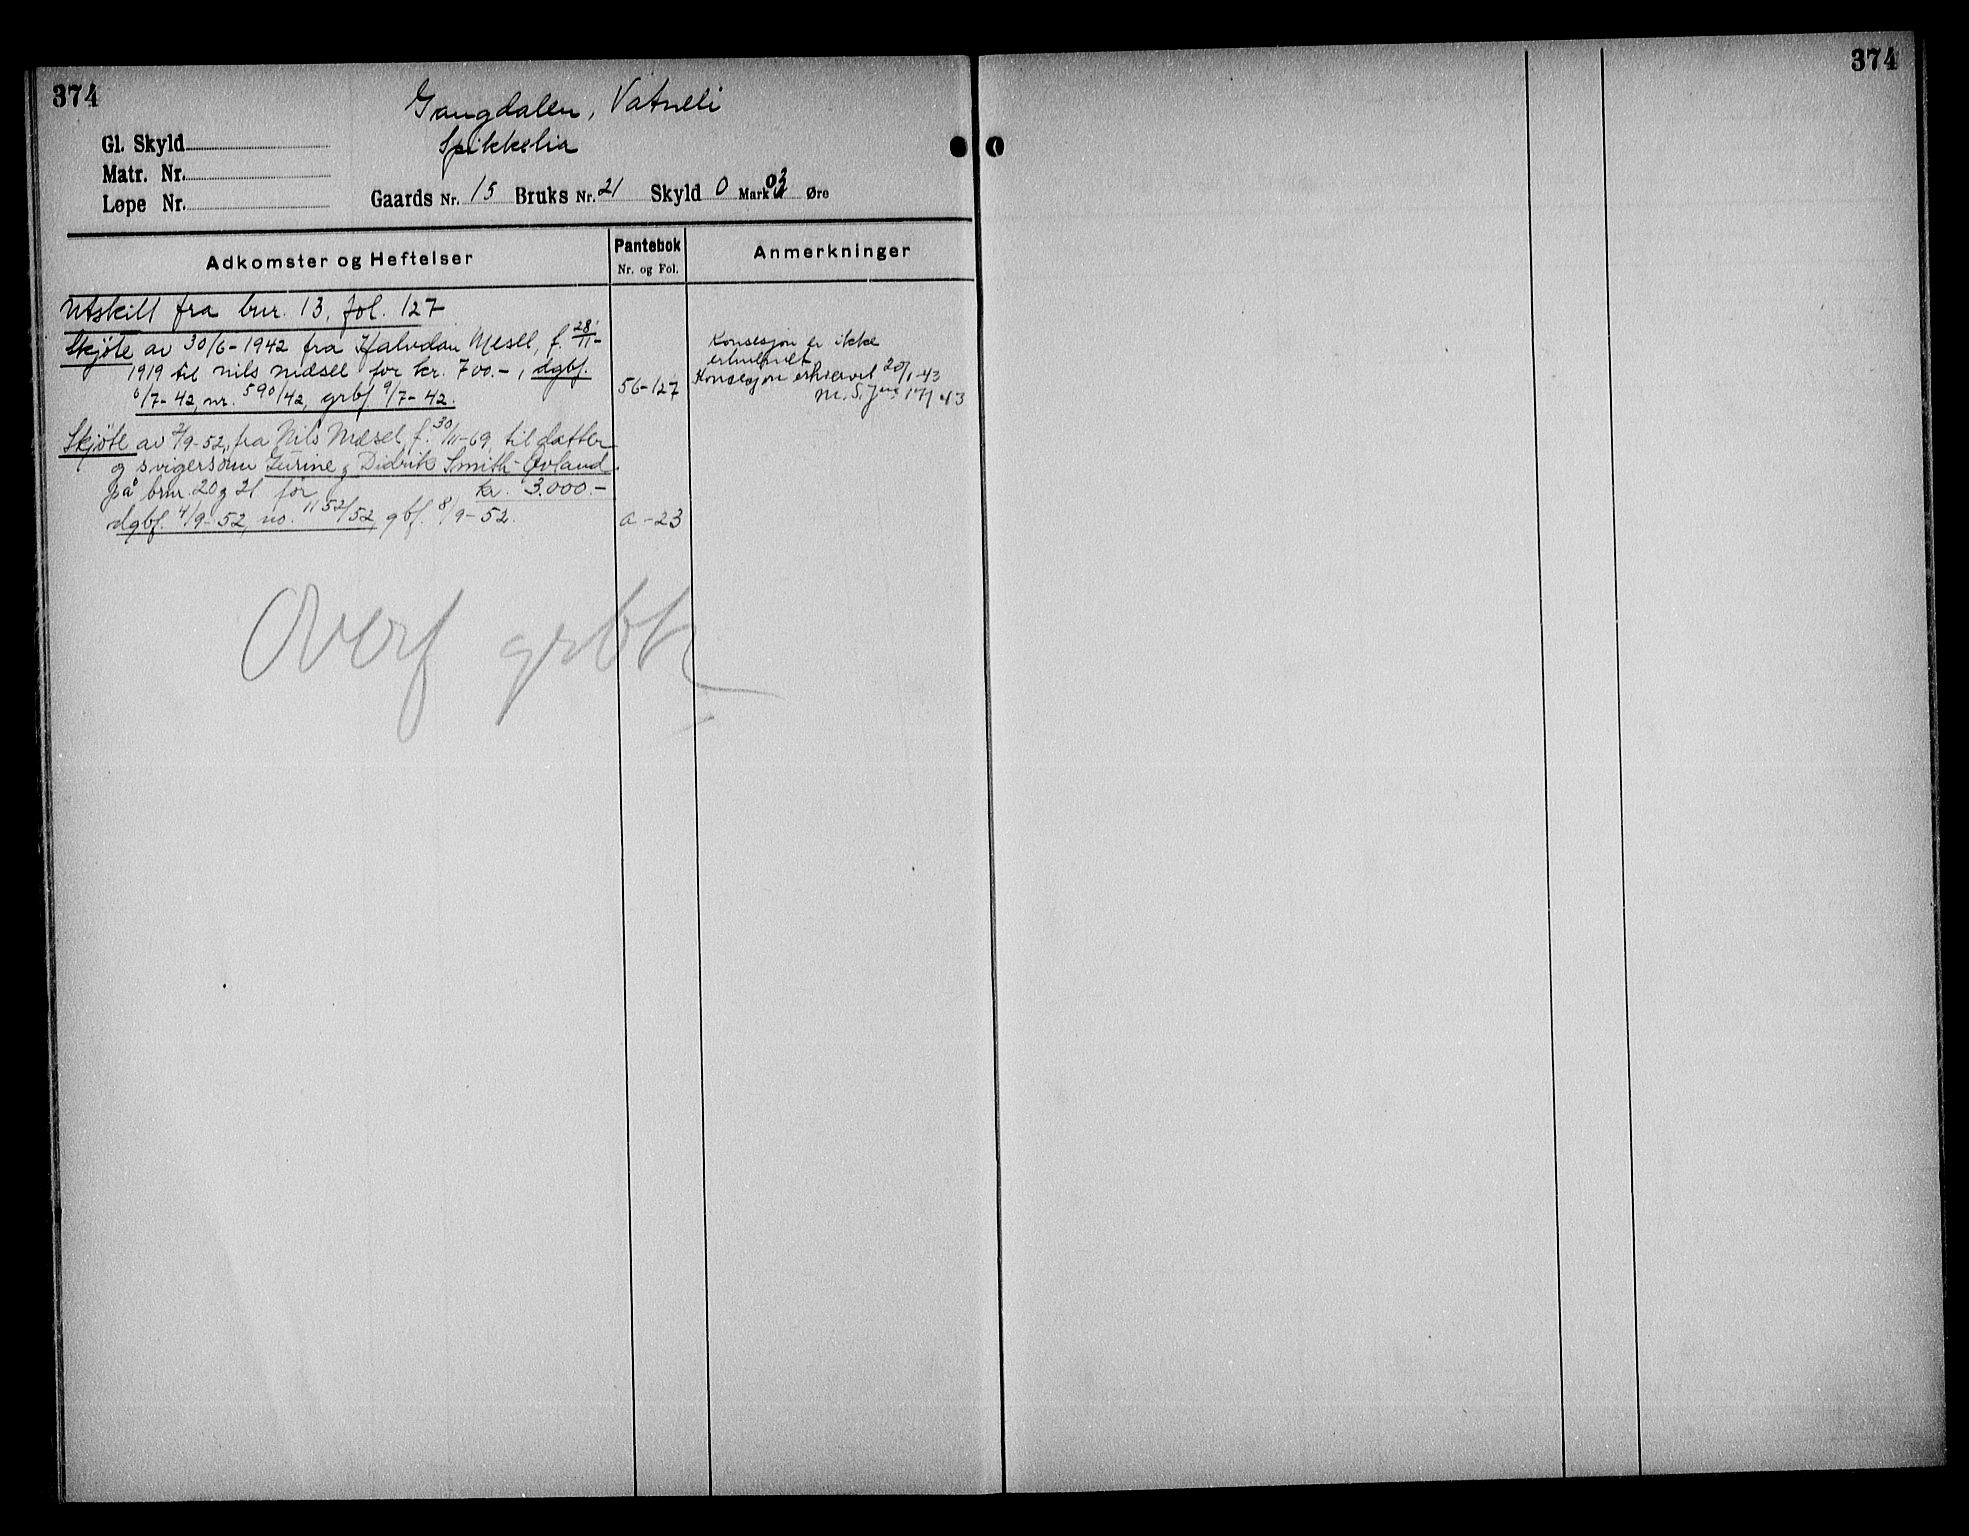 374
374
Gaugdalen, Vatneli
Spikkelia
Gl. Skyld
Matr. Nr.
Løpe Nr.
Gaards Nr. 15 Bruks Nr. 21 Skyld 0 Mark 03 Øre
Adkomster og Heftelser
Pantebok
Nr. og Fol.
Anmerkninger
Utskilt fra bnr. 13, fol. 127
Skjøte av 30/6-1942 fra Halvdan Mesel, f. 28/11-
1919 til Nils Mæsel for kr. 700.-, dgbf.
6/7-42, nr. 590/42, grbf 9/7-42.
56-127
Konsesjon er ikke
erhvervet
Konsesjon erhvervet 20/1-43
Skjøte av 2/9-52, fra Nils Mæsel f. 30/11-69, til datter
og svigersønn Turine & Didrik Smith-Øvland
på bnr. 20 & 21 for kr. 3.000.-
dgbf. 4/9-52, no. 1152/52, gbf. 8/9-52.
a-23
Overf grbk